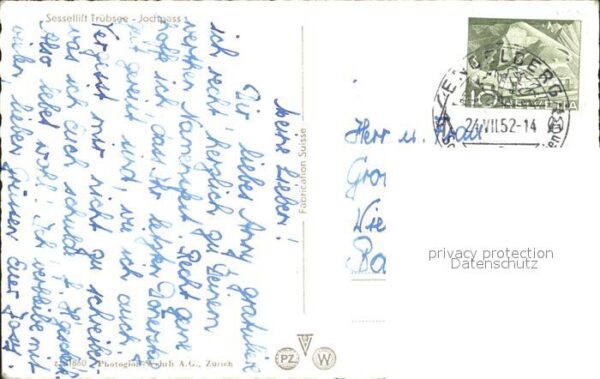 Sessellift Trübsee - Jochpass
Meine Lieben!
Dir liebes Anny gratuliere
ich recht herzlich zu Deinem
werten Namensfest. Recht gern
hoffe ich, dass ihr letzten Donnerstag
gut gereist sind, wie ich auch
Vergesst mir nicht zu schreiben
was ich Euch schuldig
Also lebet wohl! Ich verbleibe mit
vielen lieben Grüssen Euer
Fabrication Suisse
Photoglob-Wehrli A.G., Zürich
PZ
W
10
HELVETIA
ENGELBERG
24.VII.52-14
Herr u. Frau
Gro
Wie
Ba
privacy protection
Datenschutz